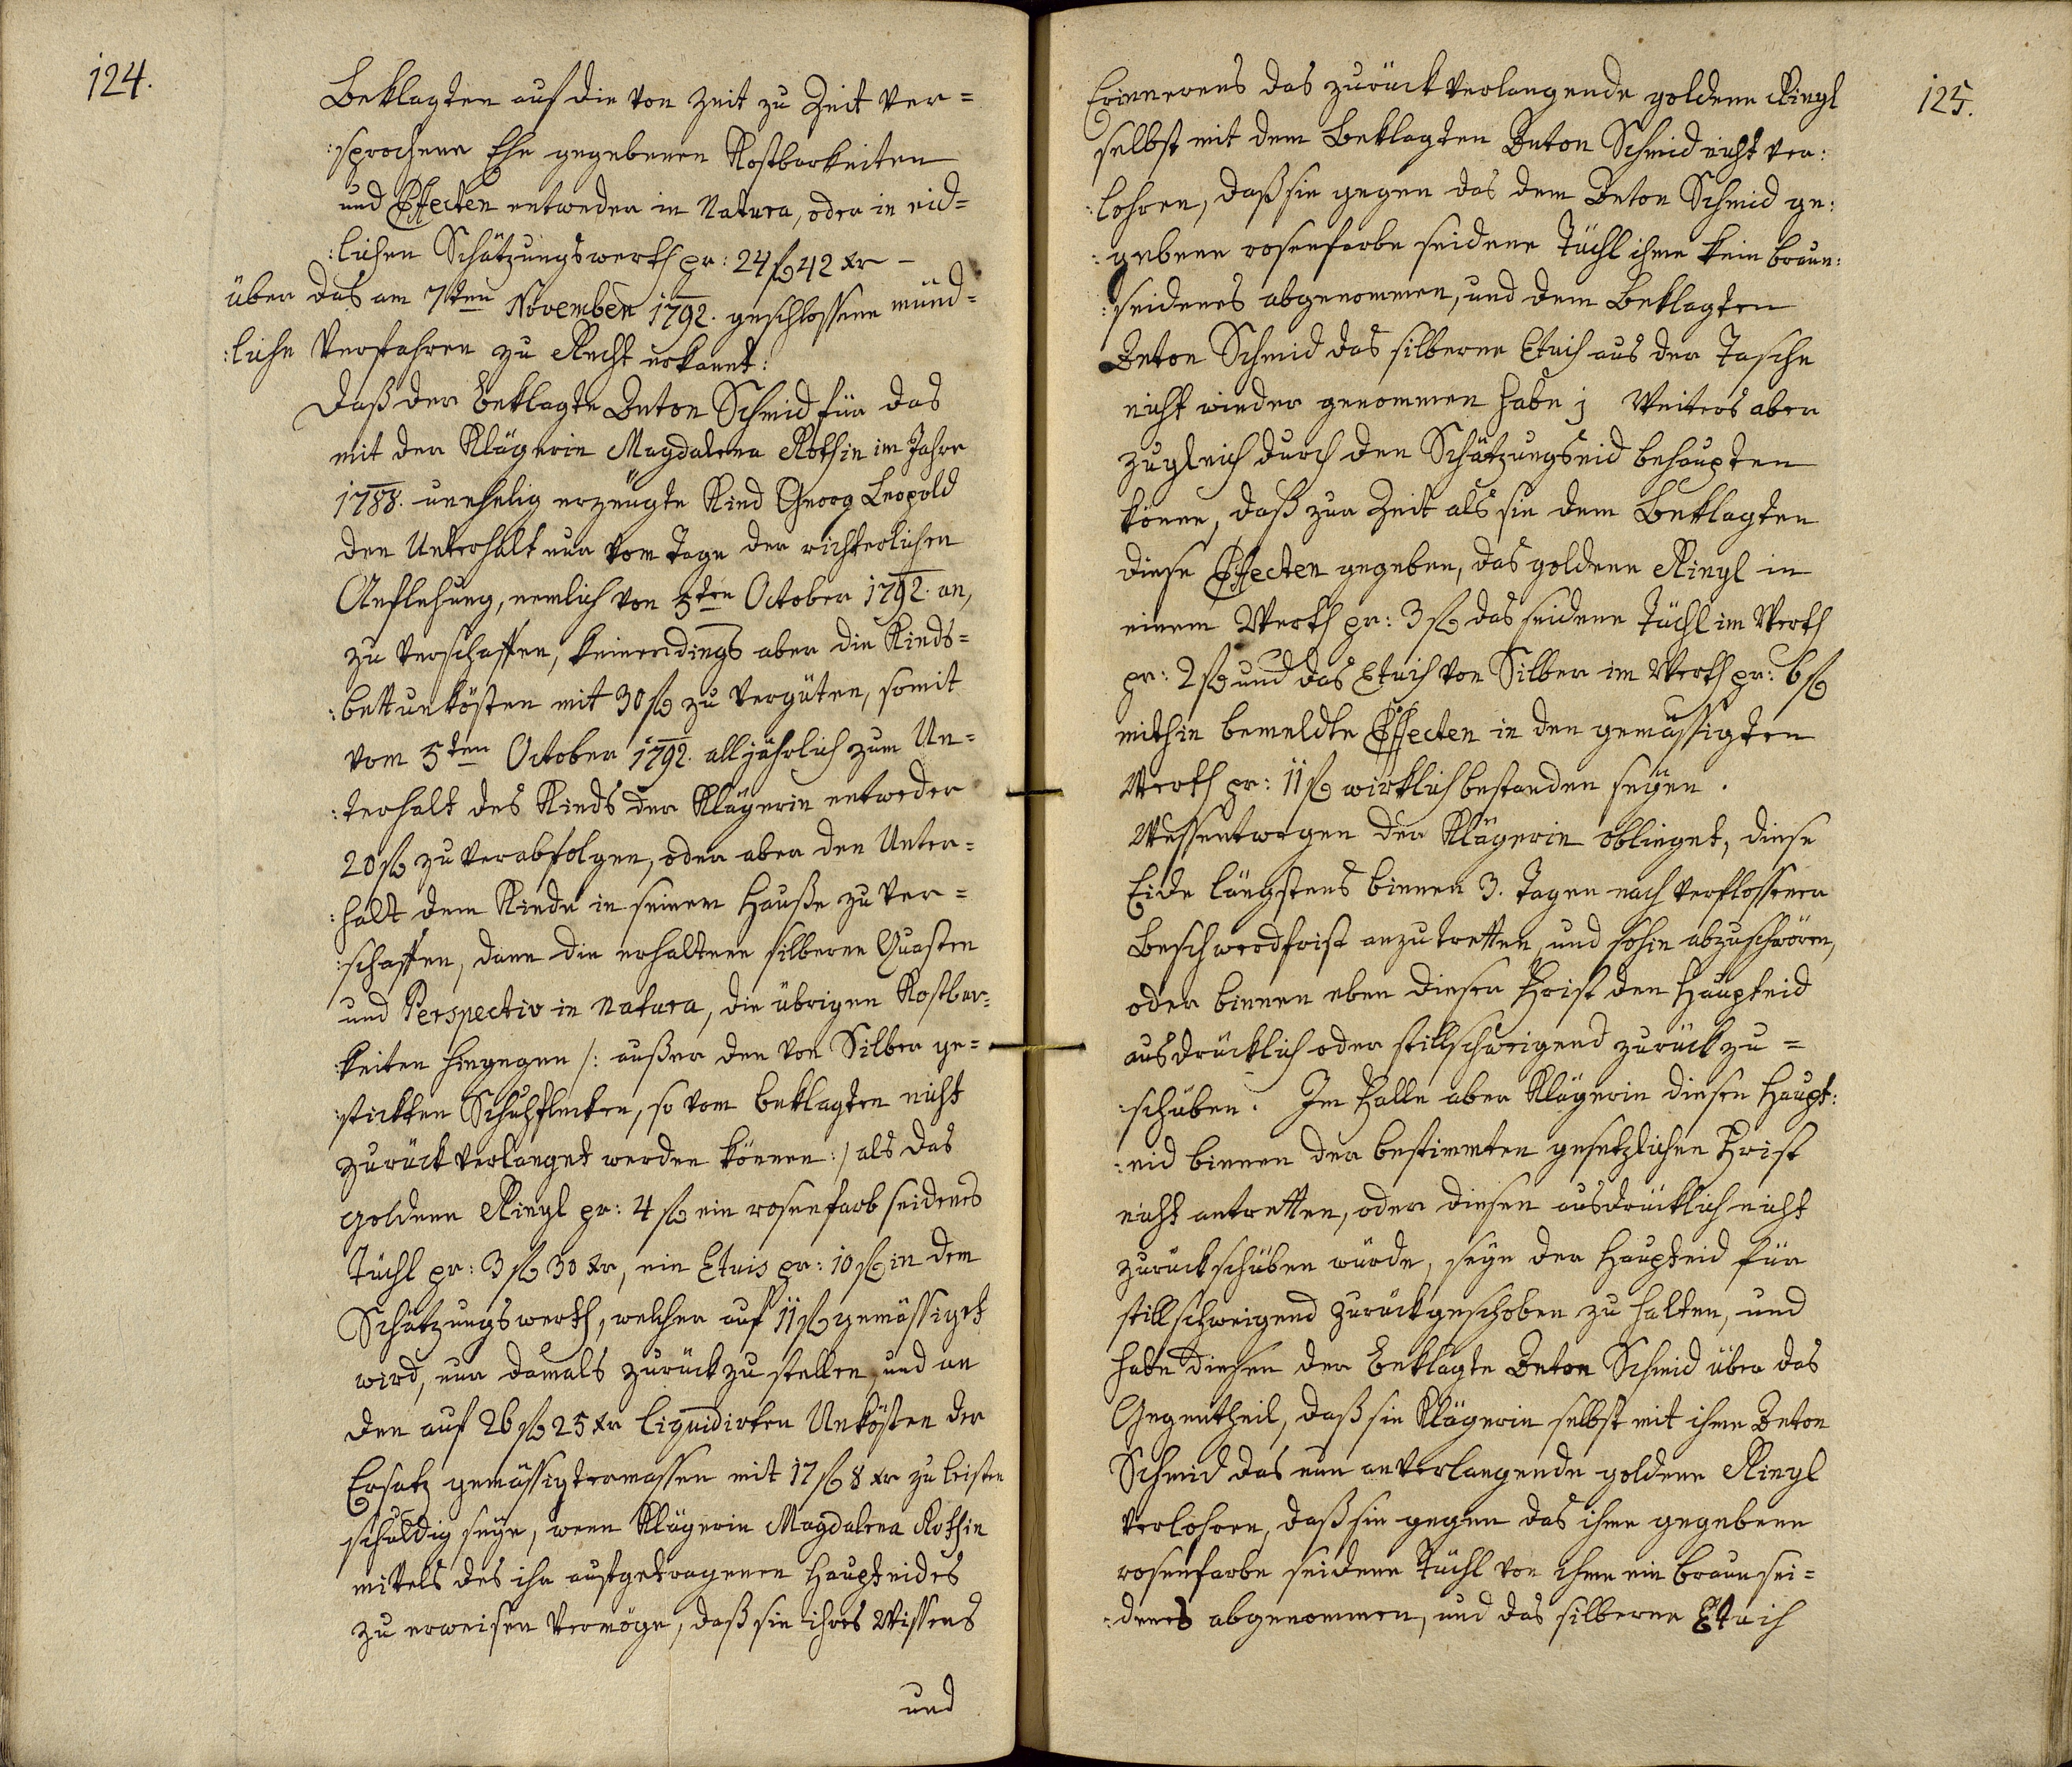 124.
Beklagten auf die von Zeit zu Zeit ver=
:sprochene Ehe gegebenen Kostbarkeiten
und Effecten entweder in Natura, oder in eid=
:lichen Schätzungswerth pr: 24 f 42 xr –
über das am 7ten November 1792. geschlossene münd=
:liche Verfahren zu Recht erkannt:
Daß der Beklagte Anton Schmid für das
mit der Klägerin Magdalena Rothin im Jahre
1788. unehelig erzeugte Kind Georg Leopold
den Unterhalt nur vom Tage der richterlichen
Anflehung, nemlich von 5ten October 1792. an,
zu verschaffen, keinerdings aber die Kinds=
:bettunkösten mit 30 f zu vergüten, somit
vom 5ten October 1792. alljährlich zum Un=
:terhalt des Kinds der Klägerin entweder
20 f zu verabfolgen, oder aber den Unter=
:halt dem Kinde in seinem Hauße zu ver=
:schaffen, dann die erhaltene silberne Quasten
und Perspectiv in Natura, die übrigen Kostbar=
:keiten hingegen /: außer den von Silber ge=
:stickten Schuhflecken, so vom beklagten nicht
zurückverlanget werden können :/ als das
goldene Ringl pr: 4 f ein rosenfarb seidenes
Tüchl pr: 3 f 30 xr, ein Etuis pr: 10 f in dem
Schätzungswerth, welcher auf 11 f gemässiget
wird, nur damals zurückzustellen, und an
den auf 26 f 25 xr liquidirten Unkösten der
Ersatz gemässigtermassen mit 17 f 8 xr zu leisten
schuldig seye, wenn Klägerin Magdalena Rothin
mittels des ihr aufgetragenen Haupteides
zu erweisen vermöge, daß sie ihres Wissens
und
125.
Erinnerens das zurückverlangende goldene Ringl
selbst mit dem Beklagten Anton Schmid nicht ver:
:lohren, daß sie gegen das dem Anton Schmid ge:
:gebene rosenfarbe seidene Tüchl ihme kein braun:
:seidenes abgenommen, und dem Beklagten
Anton Schmid das silberne Etuih aus der Tasche
nicht wieder genommen habe; Weiters aber
zugleich durch den Schätzungseid behaupten
könne, daß zur Zeit als sie dem Beklagten
diese Effecten gegeben, das goldene Ringl in
einem Werth pr: 3 f das seidene Tüchl im Werth
pr: 2 f und das Etuih von Silber im Werth pr: 6 f
mithin bemeldte Effecten in den gemässigten
Werth pr: 11 f wirklich bestanden seyen.
Wessentwegen der Klägerin oblieget, diese
Eide längstens binnen 3. Tagen nach verflossener
Beschwerdfrist anzutretten, und sohin abzuschwören,
oder binnen eben dieser Frist den Haupteid
ausdrücklich oder stillschweigend zurückzu=
:schüben. Im Falle aber Klägerin diesen Haupt:
:eid binnen der bestimmten gesetzlichen Frist
nicht antretten, oder diesen ausdrücklich nicht
zurückschüben würde, seye der Haupteid für
stillschweigend zurückgeschoben zu halten, und
habe diesen der Beklagte Anton Schmid über das
Gegentheil, daß sie Klägerin selbst mit ihme Anton
Schmid das nun anverlangende goldene Ringl
verlohren, daß sie gegen das ihme gegebene
rosenfarbe seidene Tüchl von ihme ein braun sei=
:denes abgenommen, und das silberne Etuih